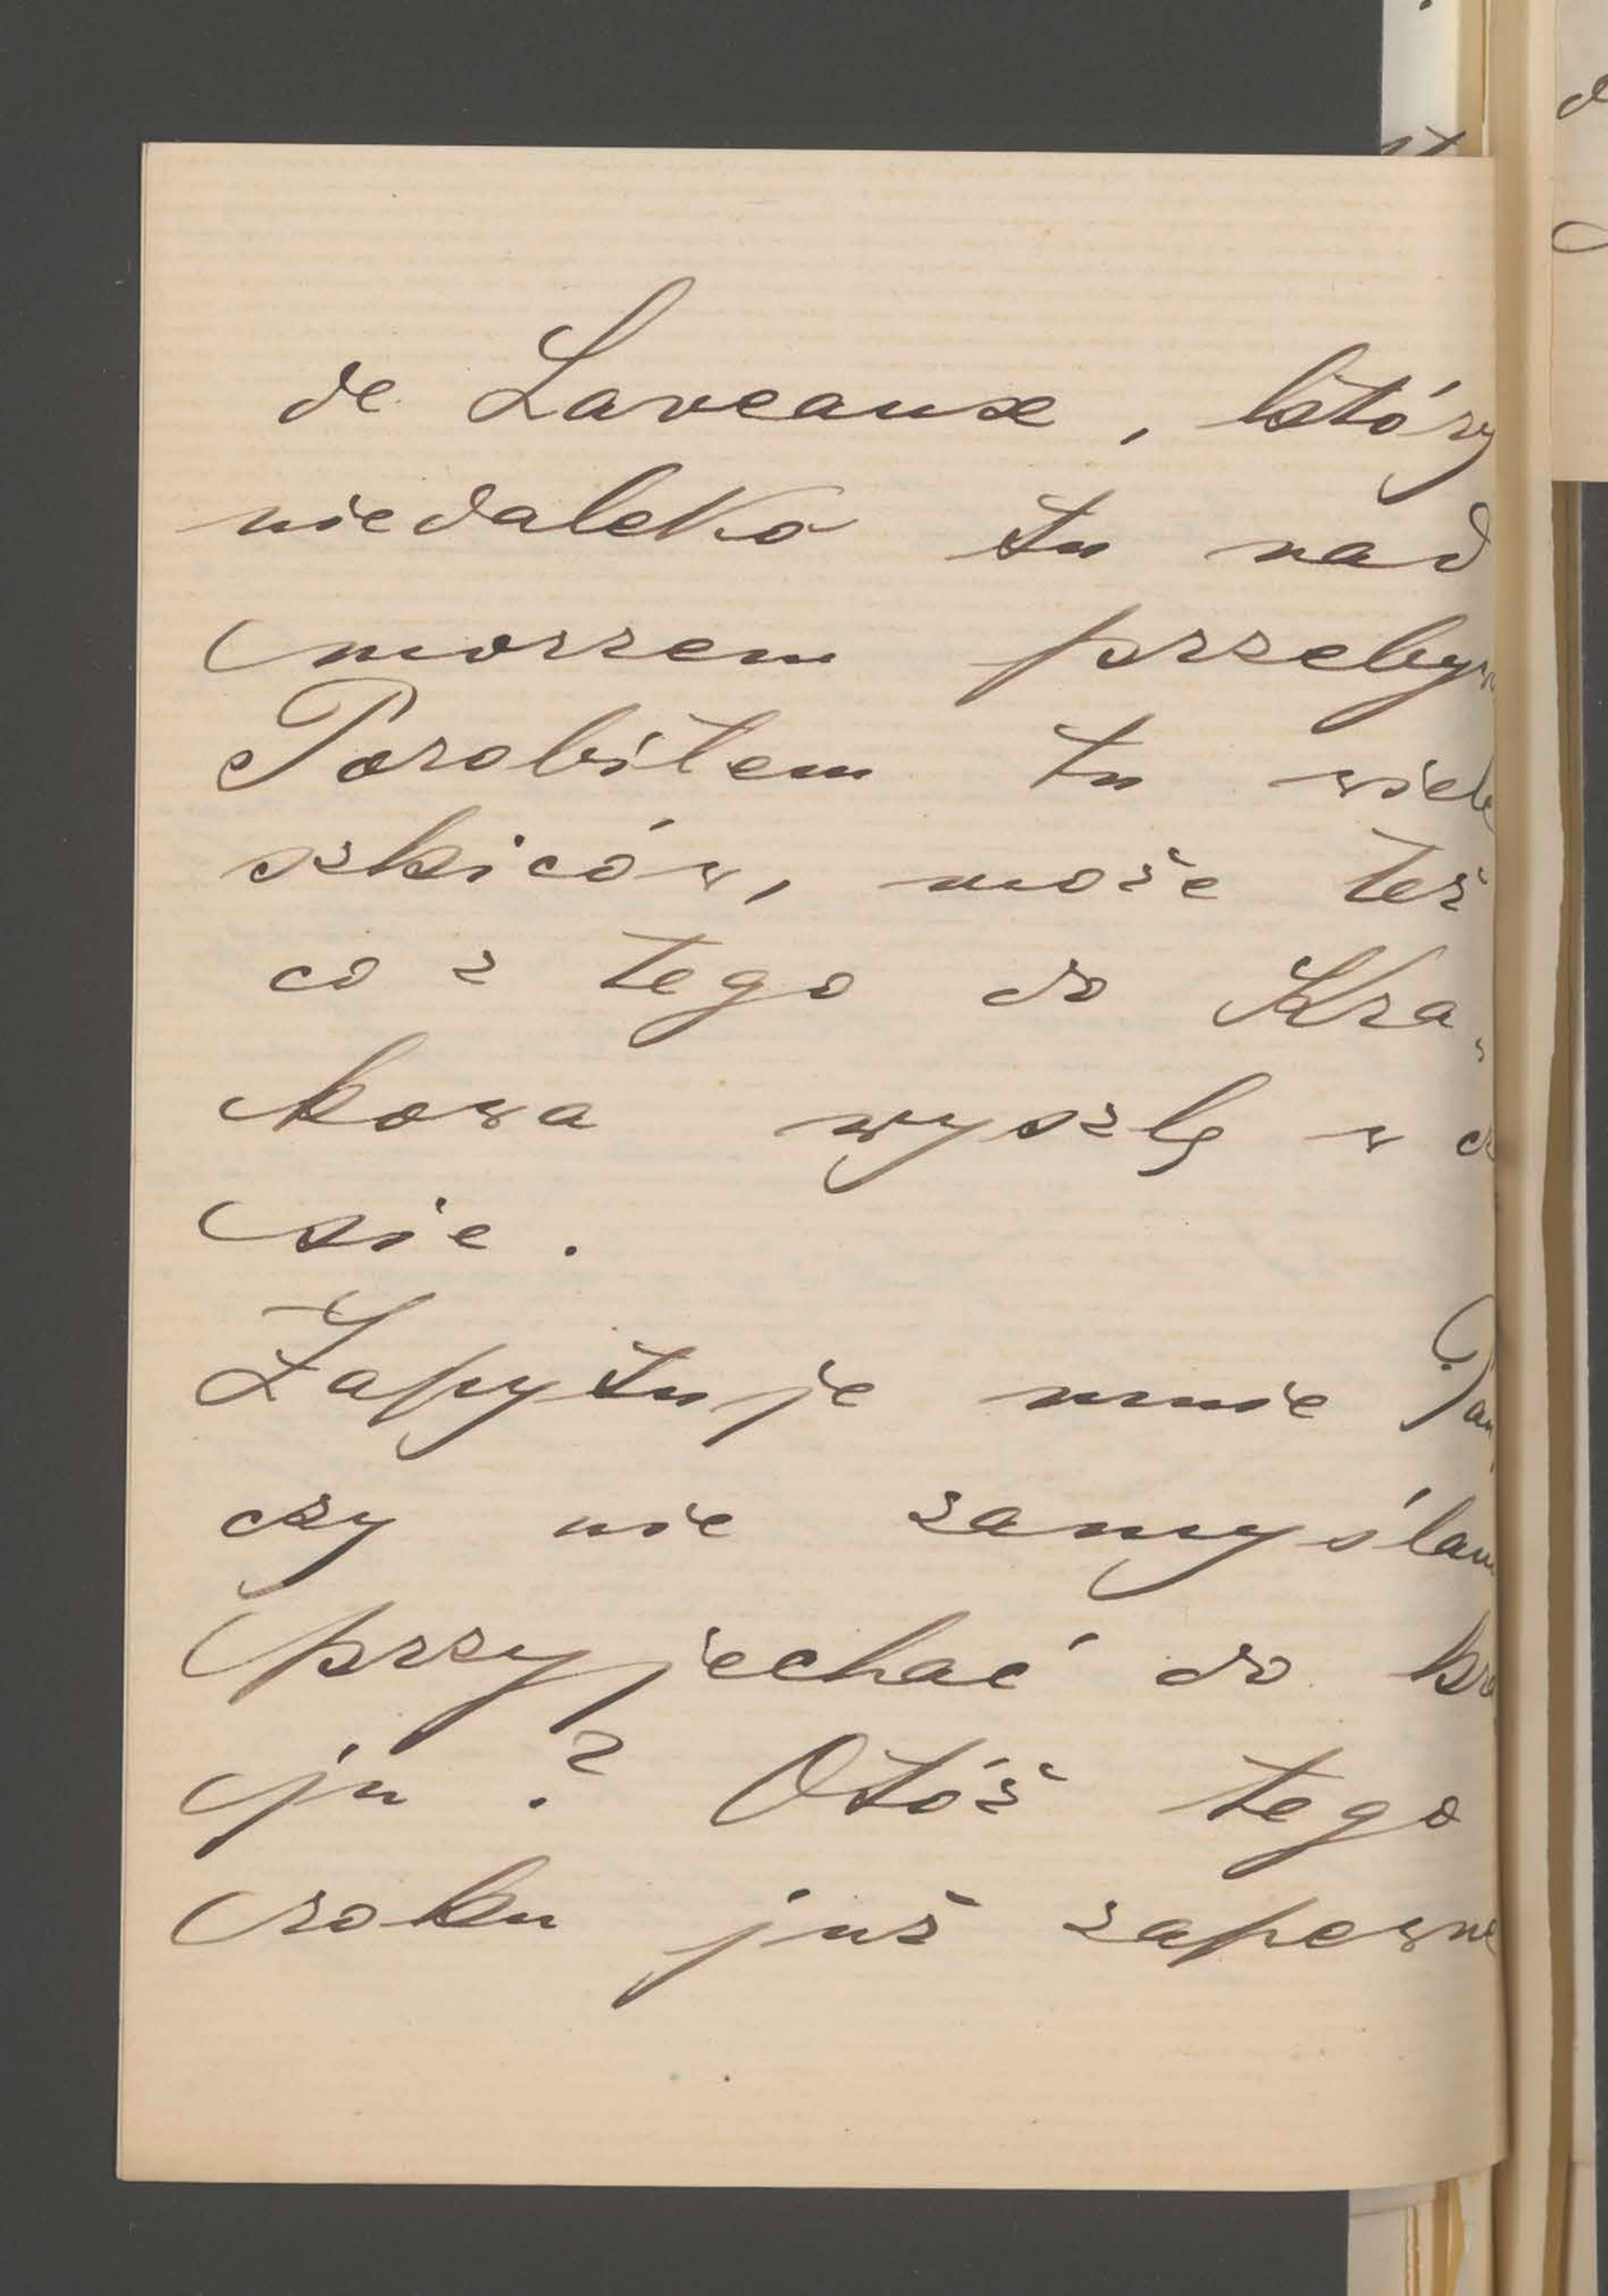 de Laveaux, który
niedaleko tu nad
morzem przeby
Porobiłem tu wiele
szkiców, może też
co z tego do Kra„
kowa wyszlę w
sie.
Zapytuje mnie Pan
czy nie zamyślam
przyjechać do kra
ju? Otóż tego
roku już zapewne